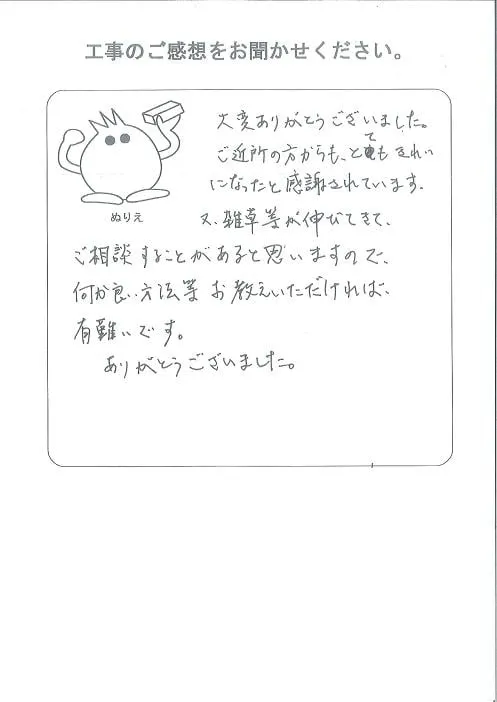 工事のご感想をお聞かせください。
大変ありがとうございました。
ご近所の方からも、とてもきれい
になったと感謝されています。
ぬりえ
又、雑草等が伸びてきて、
ご相談することがあると思いますので、
何か良い方法等お教えいただければ、
有難いです。
ありがとうございました。